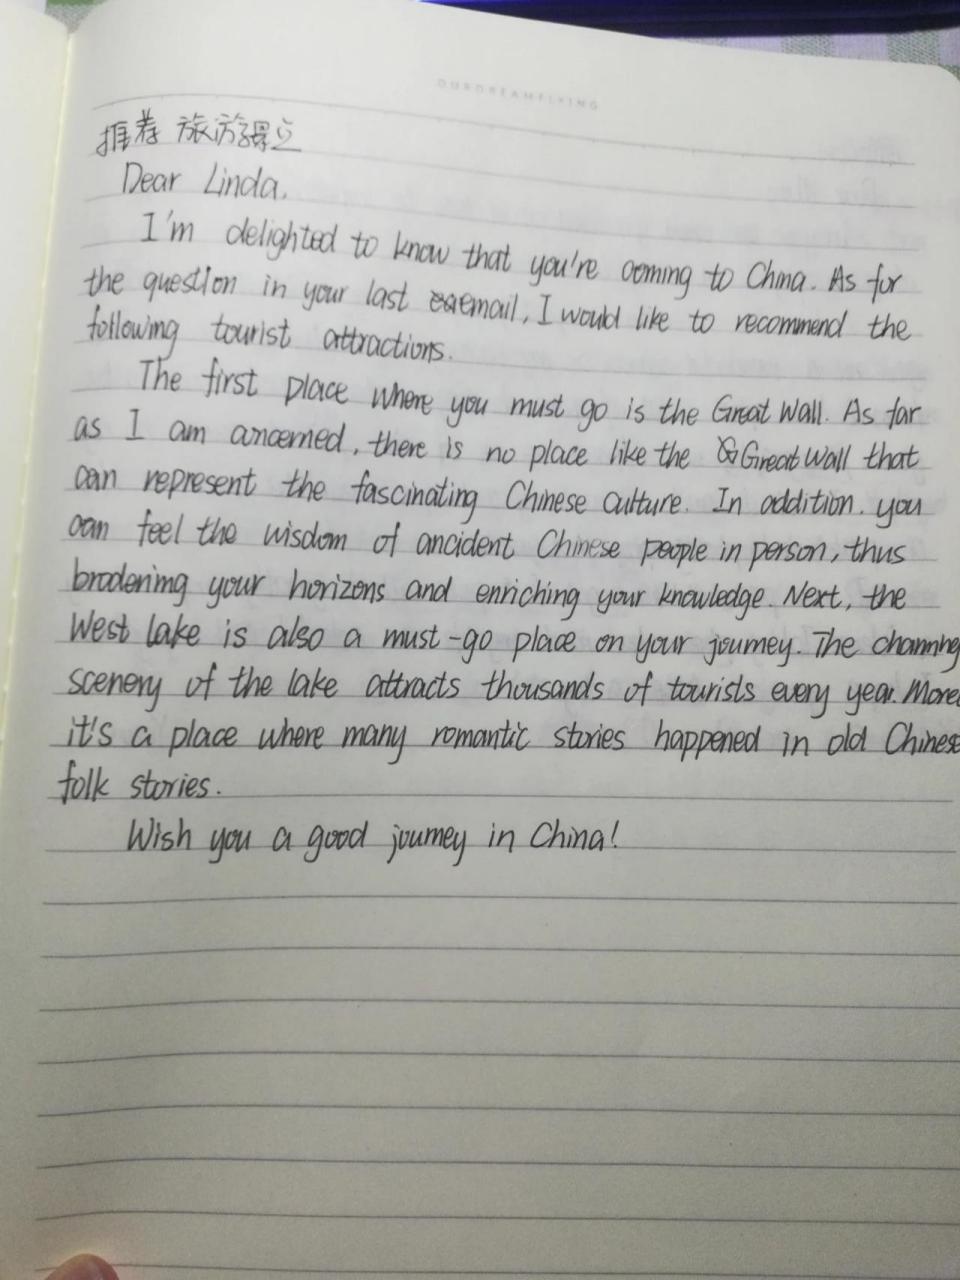 OURDREAMFLYING
推荐 旅游景点
Dear Linda,
I'm delighted to know that you're coming to China. As for
the question in your last email, I would like to recommend the
following tourist attractions.
The first place where you must go is the Great Wall. As far
as I am concerned, there is no place like the Great Wall that
can represent the fascinating Chinese culture. In addition, you
can feel the wisdom of ancident Chinese people in person, thus
brodening your horizons and enriching your knowledge. Next, the
West lake is also a must-go place on your journey. The charming
scenery of the lake attracts thousands of tourists every year. More
it's a place where many romantic stories happened in old Chinese
folk stories.
Wish you a good journey in China!